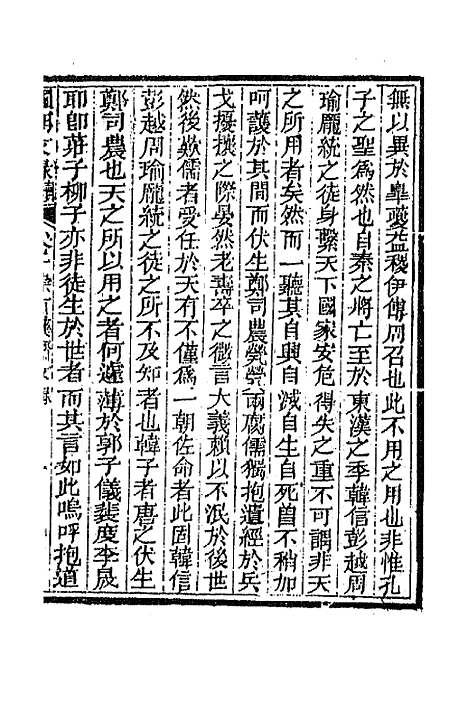 無以異於臯夔益稷伊傅周召也此不用之用也非惟孔
子之聖爲然也自秦之將亡至於東漢之季韓信彭越周
瑜龐統之徒身繫天下國家安危得失之重不可謂非天
之所用者矣然而一聽其自興自滅自生自死曾不稍加
呵護於其間而伏生鄭司農煢煢兩腐儒獨抱遺經於兵
戈擾攘之際晏然老壽卒之微言大義賴以不泯於後世
然後歎儒者受任於天有不僅爲一朝佐命者此固韓信
彭越周瑜龐統之徒之所不及知者也韓子者唐之伏生
鄭司農也天之所以用之者何遽薄於郭子儀裴度李晟
耶卽荘子柳子亦非徒生於世者而其言如此嗚呼抱道
國朝文錄續編